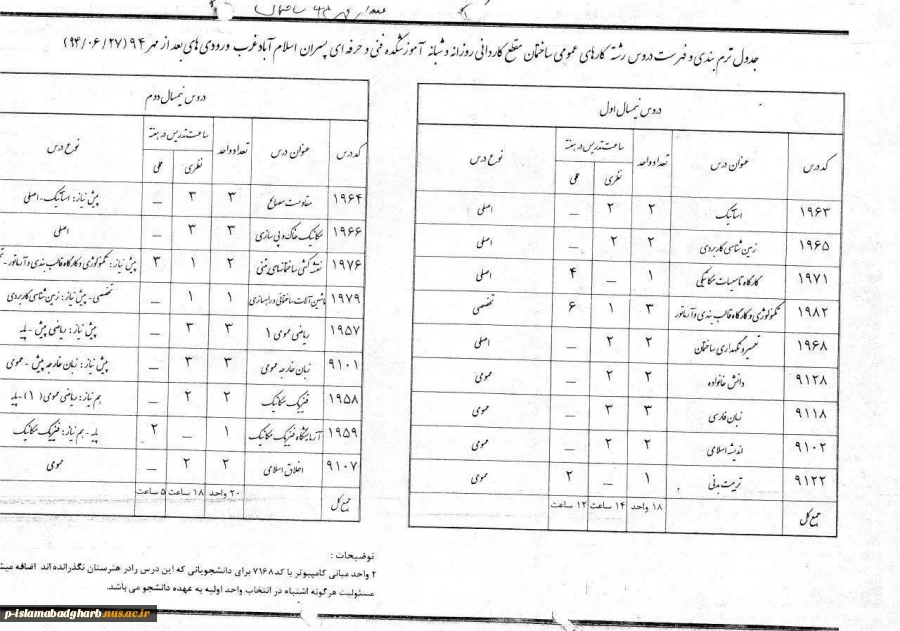 جدول ترم بندی و فهرست دروس رشته کارهای عمومی ساختمان مقطع کاردانی روزانه و شبانه آموزشکده فنی و حرفه ای پسران اسلام آبادغرب ورودی های بعد از مهر ۹۴ (۹۴/۰۶/۲۷)
دروس نیمسال اول
کد درس عنوان درس تعداد واحد ساعت تدریس در هفته نوع درس
نظری عملی
۱۹۶۳ استاتیک ۲ ۲ _ اصلی
۱۹۶۵ زمین شناسی کاربردی ۲ ۲ _ اصلی
۱۹۷۱ کارگاه تاسیسات مکانیکی ۱ _ ۴ اصلی
۱۹۸۲ تکنولوژی و کارگاه قالب بندی و آرماتور ۳ ۱ ۶ تخصصی
۱۹۶۸ تعمیر و نگهداری ساختمان ۲ ۲ _ اصلی
۹۱۲۸ دانش خانواده ۲ ۲ _ عمومی
۹۱۱۸ زبان فارسی ۳ ۳ _ عمومی
۹۱۰۲ اندیشه اسلامی ۲ ۲ _ عمومی
۹۱۲۲ تربیت بدنی ۱ _ ۲ عمومی
جمع کل ۱۸ واحد ۱۴ ساعت ۱۲ ساعت
دروس نیمسال دوم
کد درس عنوان درس تعداد واحد ساعت تدریس در هفته نوع درس
نظری عملی
۱۹۶۴ مقاومت مصالح ۳ ۳ _ پیش نیاز: استاتیک-اصلی
۱۹۶۶ مکانیک خاک و پی سازی ۳ ۳ _ اصلی
۱۹۷۶ نقشه کشی ساختمانهای بتنی ۲ ۱ ۳ پیش نیاز: تکنولوژی و کارگاه قالب بندی و آرماتور -
۱۹۷۹ ماشین آلات ساختمانی و راهسازی ۱ ۱ _ تخصصی - پیش نیاز: زمین شناسی کاربردی
۱۹۵۷ ریاضی عمومی ۱ ۳ ۳ _ پیش نیاز: ریاضی پیش - پایه
۹۱۰۱ زبان خارجه عمومی ۳ ۳ _ پیش نیاز: زبان خارجه پیش - عمومی
۱۹۵۸ فیزیک مکانیک ۲ ۲ _ هم نیاز: ریاضی عمومی (۱)-پایه
۱۹۵۹ آزمایشگاه فیزیک مکانیک ۱ _ ۲ پایه - هم نیاز: فیزیک مکانیک
۹۱۰۷ اخلاق اسلامی ۲ ۲ _ عمومی
جمع کل ۲۰ واحد ۱۸ ساعت ۵ ساعت
توضیحات :
۲ واحد مبانی کامپیوتر با کد ۷۱۶۸ برای دانشجویانی که این درس را در هنرستان نگذرانده اند اضافه میش
مسئولیت هرگونه اشتباه در انتخاب واحد اولیه به عهده دانشجو می باشد.
p-islamabadgharb.nus.ac.ir